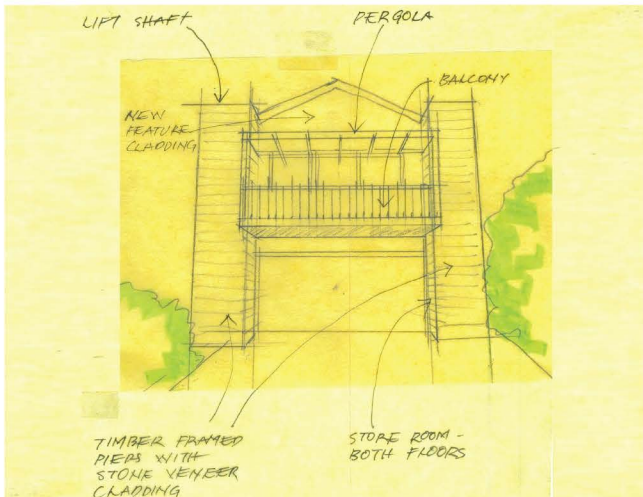 LIFT SHAFT
PERGOLA
BALCONY
NEW
FEATURE
CLADDING
TIMBER FRAMED
PIERS WITH
STONE VENEER
CLADDING
STORE ROOM -
BOTH FLOORS